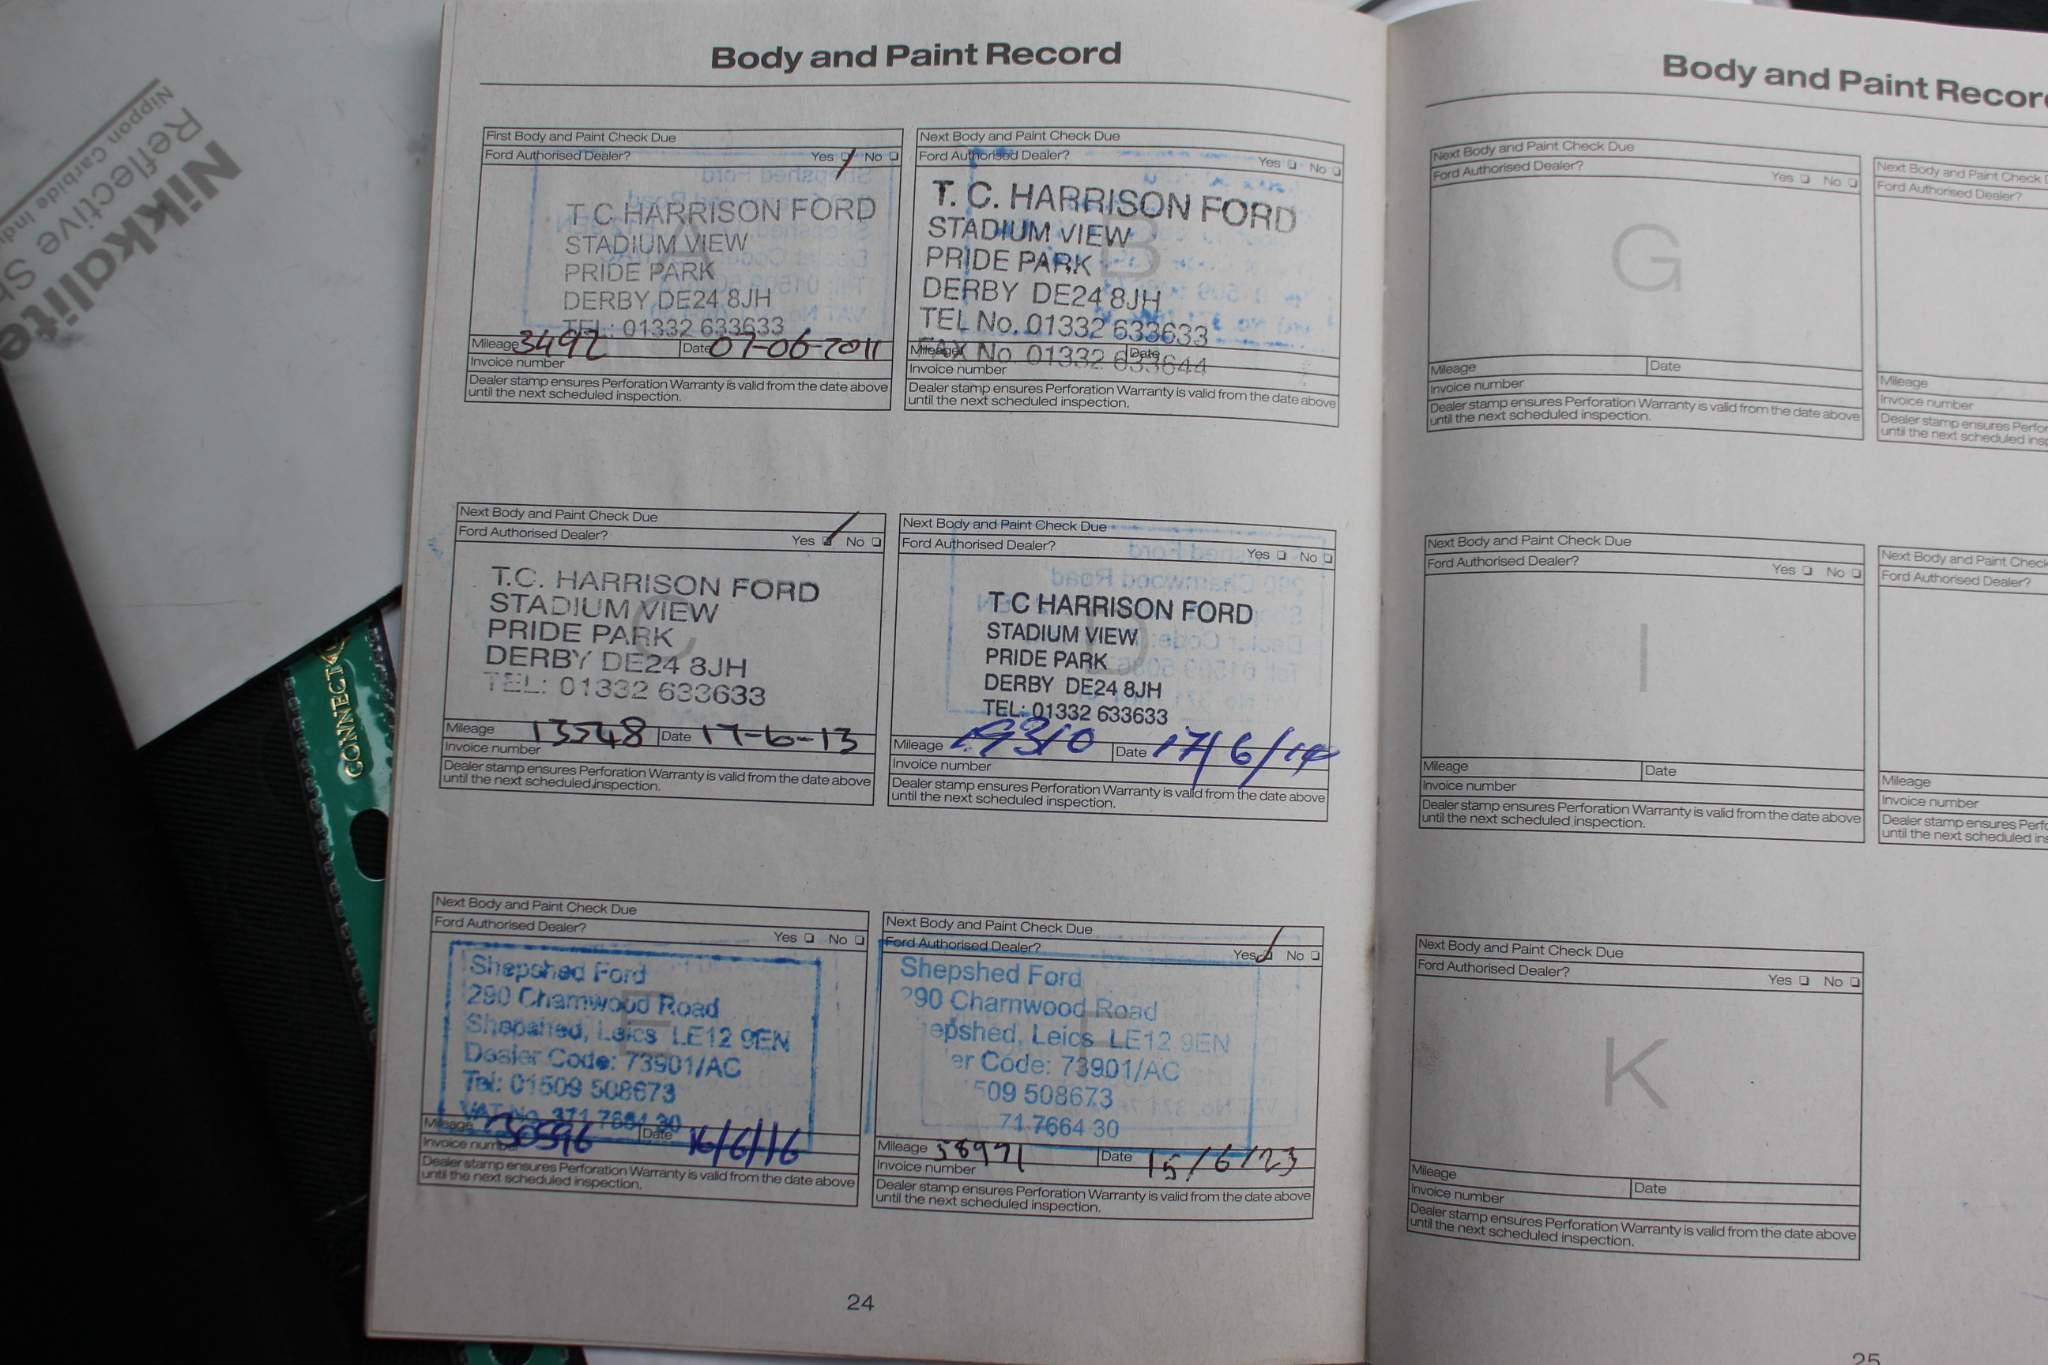 Nikkalite
Reflective
Nippon Carbide
CONNECT
Body and Paint Record
First Body and Paint Check Due
Ford Authorised Dealer? Yes No
A
T C HARRISON FORD
STADIUM VIEW
PRIDE PARK
DERBY DE24 8JH
TEL: 01332 633633
Mileage 3492 Date 07-06-2011
Invoice number
Dealer stamp ensures Perforation Warranty is valid from the date above
until the next scheduled inspection.
Next Body and Paint Check Due
Ford Authorised Dealer? Yes No
B
T. C. HARRISON FORD
STADIUM VIEW
PRIDE PARK
DERBY DE24 8JH
TEL No. 01332 633633
FAX No 01332 633644
Mileage Date
Invoice number
Dealer stamp ensures Perforation Warranty is valid from the date above
until the next scheduled inspection.
Next Body and Paint Check Due
Ford Authorised Dealer? Yes No
C
T.C. HARRISON FORD
STADIUM VIEW
PRIDE PARK
DERBY DE24 8JH
TEL: 01332 633633
Mileage 13548 Date 17-6-13
Invoice number
Dealer stamp ensures Perforation Warranty is valid from the date above
until the next scheduled inspection.
Next Body and Paint Check Due
Ford Authorised Dealer? Yes No
D
T C HARRISON FORD
STADIUM VIEW
PRIDE PARK
DERBY DE24 8JH
TEL: 01332 633633
Mileage 19310 Date 17/6/14
Invoice number
Dealer stamp ensures Perforation Warranty is valid from the date above
until the next scheduled inspection.
Next Body and Paint Check Due
Ford Authorised Dealer? Yes No
E
Shepshed Ford
290 Charnwood Road
Shepshed, Leics LE12 9EN
Dealer Code: 73901/AC
Tel: 01509 508673
VAT No. 371 7664 30
Mileage 30596 Date 16/6/16
Invoice number
Dealer stamp ensures Perforation Warranty is valid from the date above
until the next scheduled inspection.
Next Body and Paint Check Due
Ford Authorised Dealer? Yes No
F
Shepshed Ford
290 Charnwood Road
epshed, Leics LE12 9EN
er Code: 73901/AC
509 508673
71 7664 30
Mileage 58971 Date 15/6/23
Invoice number
Dealer stamp ensures Perforation Warranty is valid from the date above
until the next scheduled inspection.
24
Body and Paint Recor
Next Body and Paint Check Due
Ford Authorised Dealer? Yes No
G
Mileage Date
Invoice number
Dealer stamp ensures Perforation Warranty is valid from the date above
until the next scheduled inspection.
Next Body and Paint Check
Ford Authorised Dealer?
Mileage
Invoice number
Dealer stamp ensures Perfor
until the next scheduled ins
Next Body and Paint Check Due
Ford Authorised Dealer? Yes No
I
Mileage Date
Invoice number
Dealer stamp ensures Perforation Warranty is valid from the date above
until the next scheduled inspection.
Next Body and Paint Chec
Ford Authorised Dealer?
Mileage
Invoice number
Dealer stamp ensures Perfo
until the next scheduled ins
Next Body and Paint Check Due
Ford Authorised Dealer? Yes No
K
Mileage Date
Invoice number
Dealer stamp ensures Perforation Warranty is valid from the date above
until the next scheduled inspection.
25